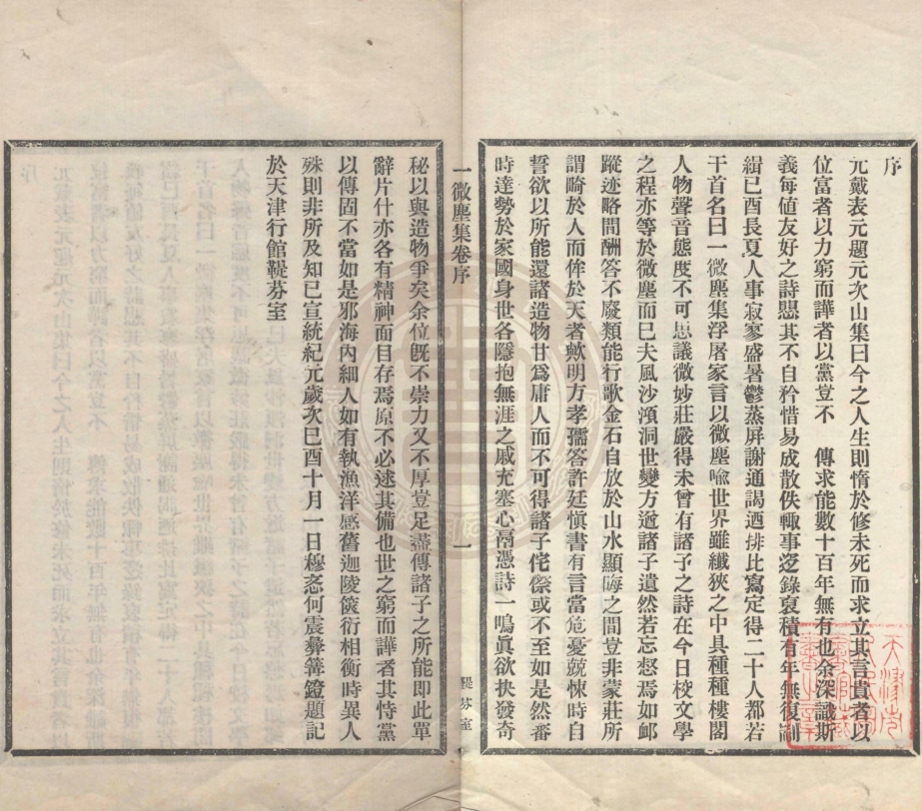 序
元戴表元題元次山集曰今之人生則惰於修未死而求立其言貴者以
位富者以力窮而譁者以黨豈不 傳求能數十百年無有也余深識斯
義每値友好之詩愳其不自矜惜易成散佚輙事迻錄裒積有年無復劑
緝已酉長夏人事寂寥盛暑鬱蒸屏謝通謁迺排比寫定得二十人都若
干首名曰一微塵集浮屠家言以微塵喩世界雖纖狹之中具種種樓閣
人物聲音態度不可思議微妙莊嚴得未曾有諸子之詩在今日校文學
之程亦等於微塵而已夫風沙澒洞世變方遒諸子遺然若忘惄焉如邮
蹤迹略閒酬答不廢類能行歌金石自放於山水顯晦之間豈非蒙莊所
謂畸於人而侔於天者歟明方孝孺答許廷愼書有言當危憂兢悚時自
誓欲以所能還諸造物甘爲庸人而不可得諸子侘傺或不至如是然審
時達勢於家國身世各隱抱無涯之戚充塞心鬲憑詩一鳴眞欲抉發奇
一微塵集卷序
一
鞮芬室
秘以與造物爭矣余位旣不崇力又不厚豈足盡傳諸子之所能即此單
辭片什亦各有精神面目存焉原不必逑其備也世之窮而譁者其恃黨
以傳固不當如是邪海內細人如有執漁洋感舊迦陵篋衍相衡時異人
殊則非所及知已宣統紀元歲次已酉十月一日穆忞何震彝篝鐙題記
於天津行館鞮芬室